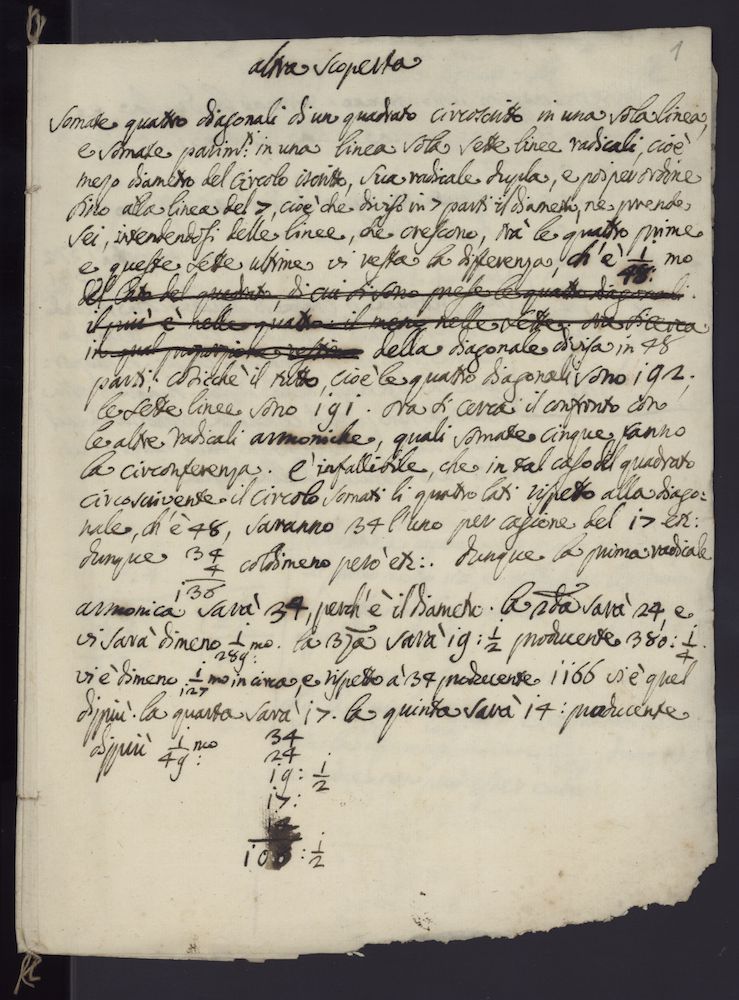 1
altra scoperta
Somate quattro diagonali di un quadrato circoscritto in una sola linea,
e somate parim.ti in una linea sola sette linee radicali, cioè
mezo diametro del circolo iscritto, sua radicale dupla, e poi per ordine
fino alla linea del 7, cioè che diviso in 7 parti il diametro, ne prende
sei, intendendosi delle linee, che crescono, trà le quattro prime
e queste sette ultime vi resta la differenza, ch'è 1/48: mo
del lato del quadrato, di cui si sono prese le quattro diagonali.
il più è nelle quattro: il meno nelle sette: ora si cerca
in qual proporzione della diagonale divisa in 48
parti; cosicchè il tutto, cioè le quattro diagonali sono 192;
le sette linee sono 191. ora si cerca il confronto con
le altre radicali armoniche, quali somate cinque fanno
la circonferenza. è infallibile, che in tal caso del quadrato
circoscrivente il circolo somati li quattro lati rispetto alla diago:
nale, ch'è 48, saranno 34 l'uno per cagione del 17 etc:
dunque 34 coldimeno però etc:. dunque la prima radicale
4
136
armonica sarà 34, perch'è il diametro. la 2da sarà 24, e
vi sarà dimeno 1/289: mo. la 3za sarà 19: 1/2 producente 380: 1/4.
vi è dimeno 1/127 mo in circa, e rispetto à 34 producente 1166 vi è quel
dipiù. la quarta sarà 17. la quinta sarà 14: producente
dipiù 1/49: mo
34
24
19: 1/2
17:
14
108: 1/2